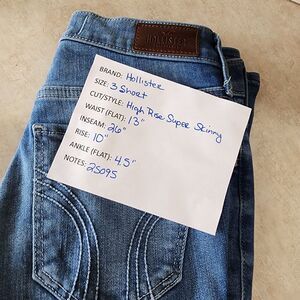 HOLLISTER
BRAND: Hollister
SIZE: 3 Short
CUT/STYLE: High Rise Super Skinny
WAIST (FLAT): 13"
INSEAM: 26"
RISE: 10"
ANKLE (FLAT): 4.5"
NOTES: 25095